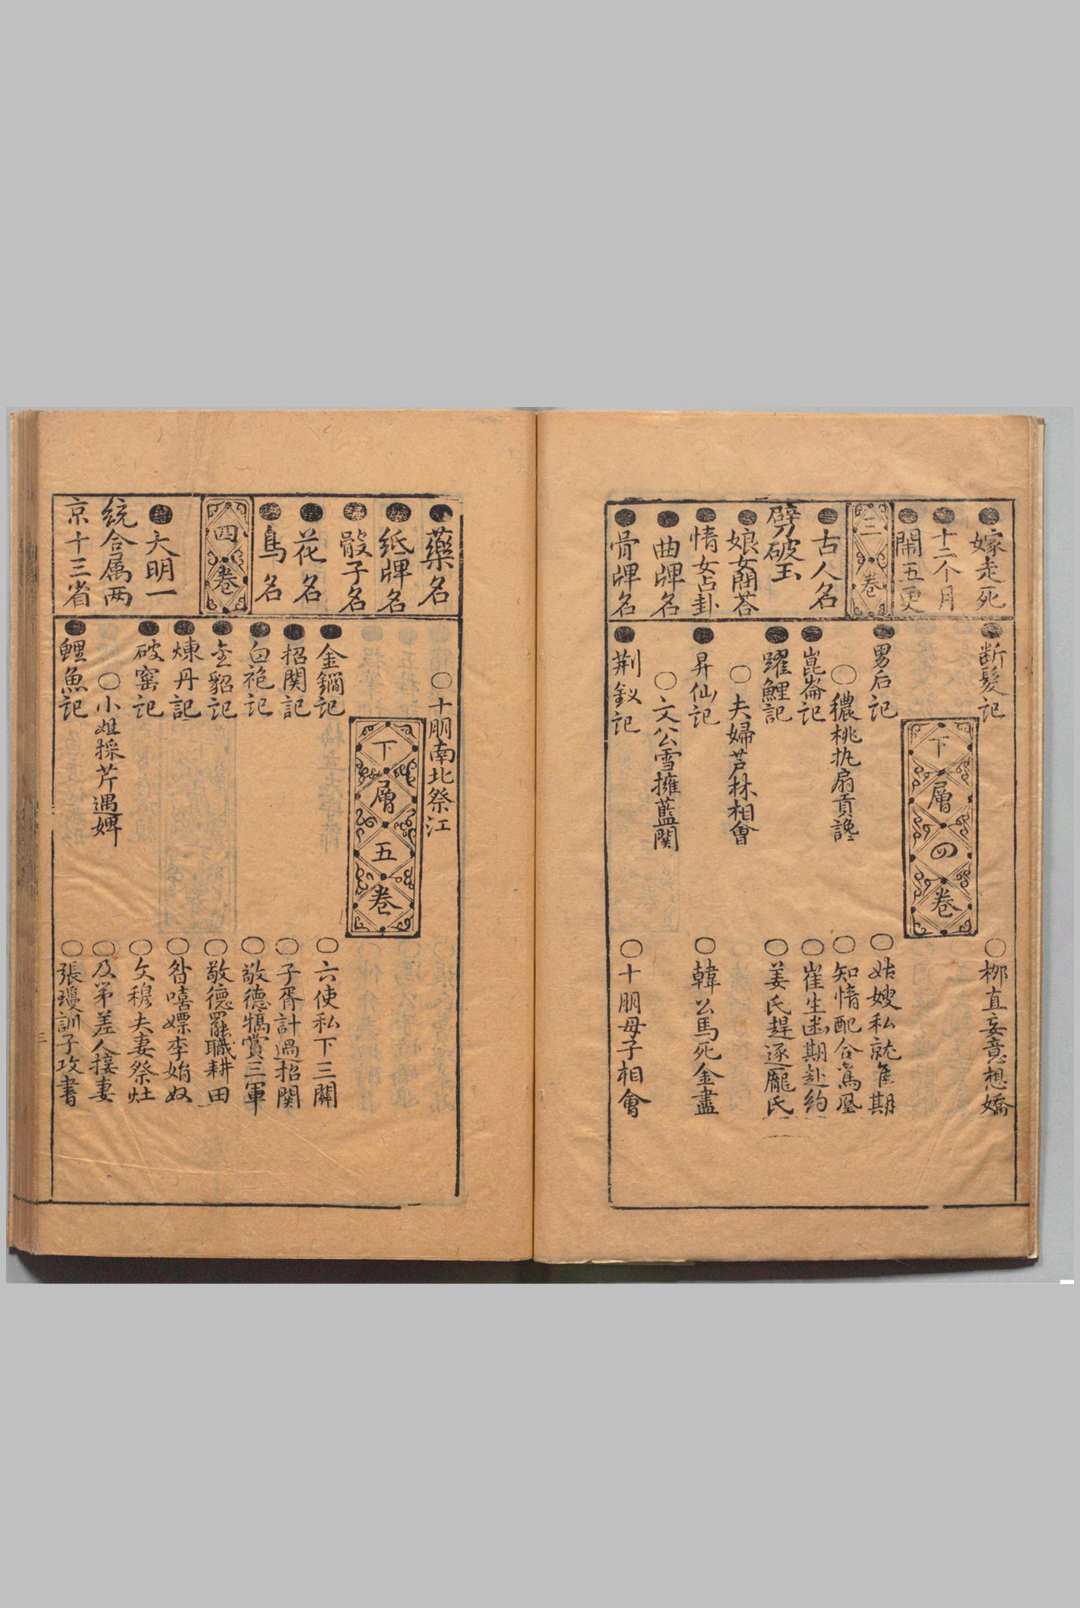 ●嫁走死
●十二个月
●閙五更
三卷
●古人名
劈破玉
●娘女問荅
●情女占卦
●曲牌名
●骨牌名
●断髮記 ○梛直妄意想嬌
下層四卷
●男后記 ○姑嫂私就隹期
○穠桃执扇貢讒 ○知情配合鸞凰
●崑崙記 ○崔生期赴約
●躍鯉記 ○姜氏趕逐龐氏
○夫婦芦林相會
●昇仙記 ○韓公馬死金盡
○文公雪擁藍関
●荆釵記 ○十朋母子相會
●藥名
●紙牌名
●骰子名
●花名
●鳥名
四卷
●大明一
統合属两
京十三省
○十朋南北祭江
下層五卷
●金鐧記 ○六使私下三關
●招関記 ○子胥計過招関
●白袍記 ○敬德犒賞三軍
●金貂記 ○敬德罷職耕田
●煉丹記 ○昝嘻嫖李娟奴
●破窑記 ○文穆夫妻祭灶
○小姐採芹遇婢 ○及第差人接妻
●鯉魚記 ○張瓊訓子攻書
三